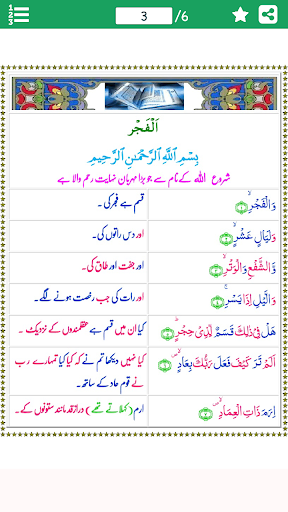 1 2 3
3 /6
اَلْفَجْر
بِسْمِ اللّٰهِ الرَّحْمٰنِ الرَّحِيْمِ
شروع اللہ کے نام سے جو بڑا مہربان نہایت رحم والا ہے
وَالْفَجْرِۙ ﴿۱﴾ قسم ہے فجر کی۔
وَلَيَالٍ عَشْرٍۙ ﴿۲﴾ اور دس راتوں کی۔
وَّالشَّفْعِ وَالْوَتْرِۙ ﴿۳﴾ اور جفت اور طاق کی۔
وَالَّيْلِ اِذَا يَسْرِۚ ﴿۴﴾ اور رات کی جب رخصت ہونے لگے۔
هَلْ فِىْ ذٰلِكَ قَسَمٌ لِّذِىْ حِجْرٍؕ ﴿۵﴾ کیا ان میں قسم ہے عقلمندوں کے نزدیک۔
اَلَمْ تَرَ كَيْفَ فَعَلَ رَبُّكَ بِعَادٍۙ ﴿۶﴾ کیا نہیں دیکھا تم نے کہ کیا کیا تمہارے رب
نے قوم عاد کے ساتھ۔
اِرَمَ ذَاتِ الْعِمَادِۙ ﴿۷﴾ ارم (کہلاتے تھے) دراز قد مانند ستونوں کے۔